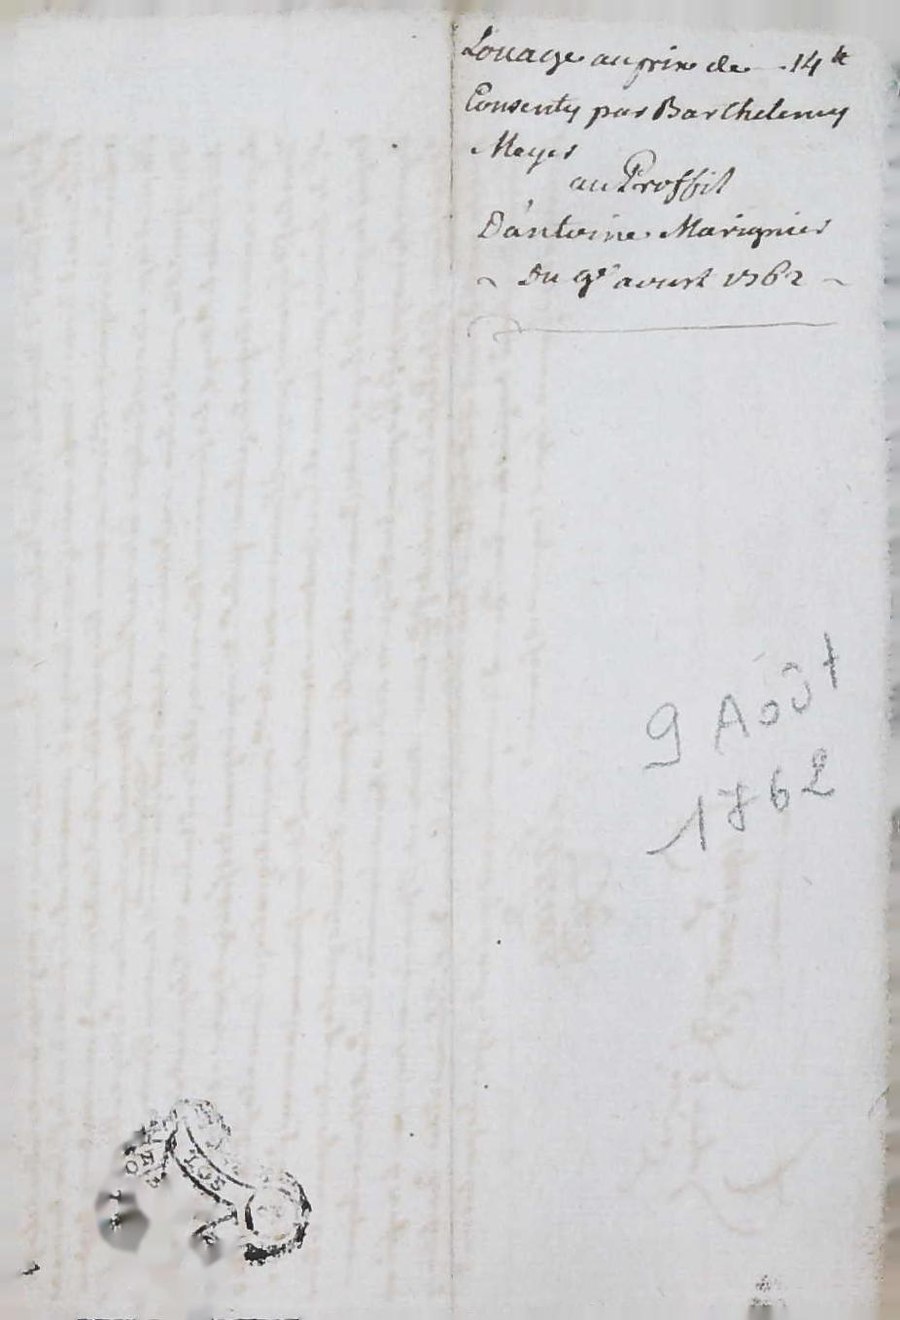 Louage au prix de 14 tt
Consenty par Barthelemy
Meyer
au Proffit
D'antoine Marignier
~ Du 9e aoust 1762 ~
9 Août
1762